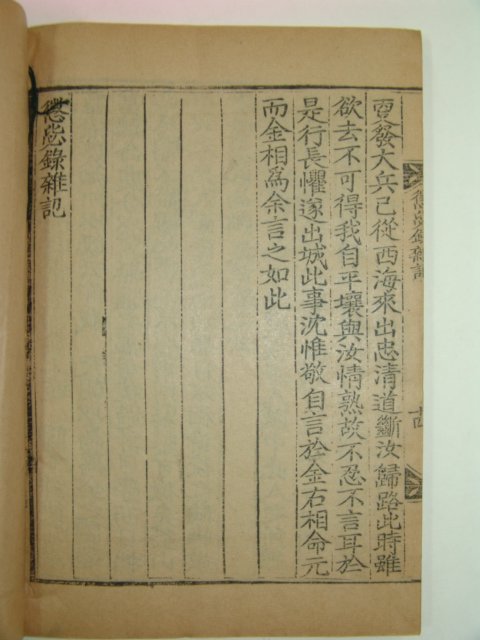 曺發大兵已從西海來出忠清道斷汝歸路此時雖
欲去不可得我自平壤與汝情熟故不忍不言耳於
是行長懼遂出城此事沈惟敬自言於金右相命元
而金相爲余言之如此
懲毖錄雜記
懲毖錄雜記
十四